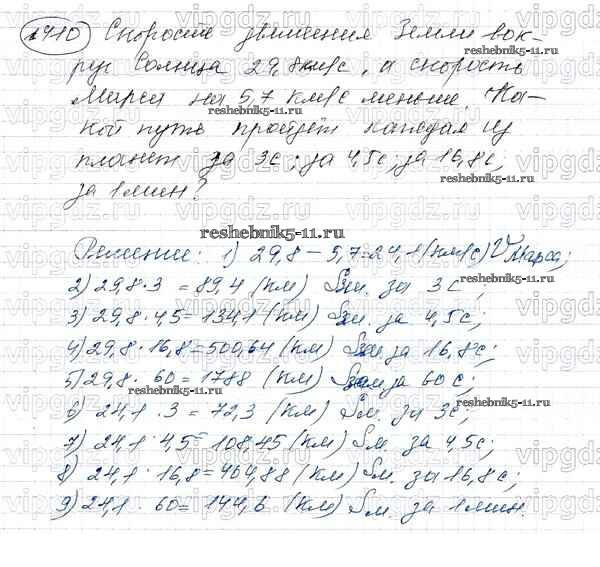 1410 Скорость движения Земли вок-
руг Солнца 29,8км/с, а скорость
Марса на 5,7 км/с меньше. Ка-
кой путь пройдёт каждая из
планет за 3с; за 4,5с; за 16,8с;
за 1 мин?
Решение: 1) 29,8-5,7=24,1 (км/с) V Марса;
2) 29,8·3 = 89,4 (км) Sзм. за 3с;
3) 29,8·4,5=134,1 (км) Sзм. за 4,5с;
4) 29,8·16,8=500,64 (км) Sзм. за 16,8с;
5) 29,8·60=1788 (км) Sзем. за 60с;
6) 24,1·3=72,3 (км) Sм. за 3с;
7) 24,1·4,5=108,45 (км) Sм. за 4,5с;
8) 24,1·16,8=404,88 (км) Sм. за 16,8с;
9) 24,1·60=144,6 (км) Sм. за 1 мин.
vipgdz
reshebnik5-11.ru